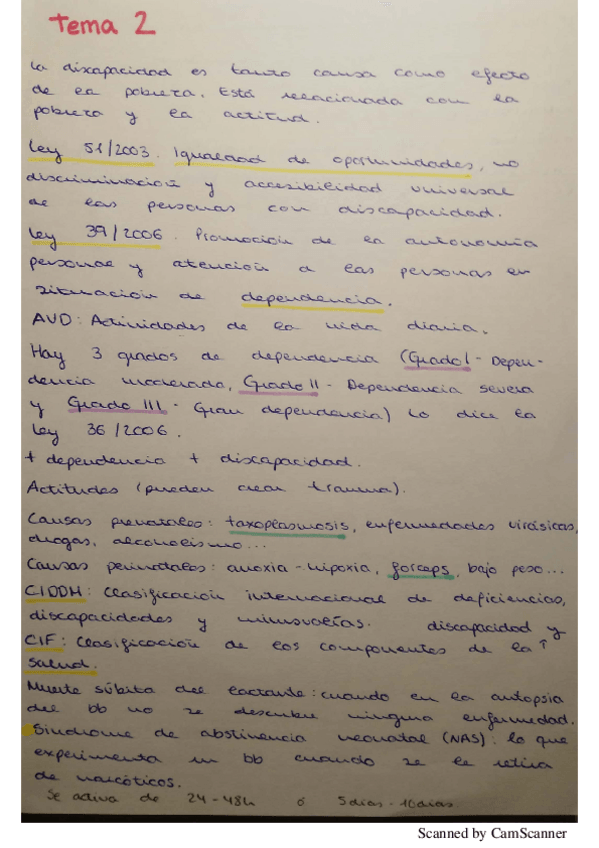 Tema 2
La discapacidad es tanto causa como efecto
de la pobreza. Está relacionada con la
pobreza y la actitud.
Ley 51/2003. Igualdad de oportunidades, no
discriminación y accesibilidad universal
de las personas con discapacidad.
Ley 39/2006. Promoción de la autonomía
personal y atención a las personas en
situación de dependencia.
AVD: Actividades de la vida diaria.
Hay 3 grados de dependencia (Grado I - Depen-
dencia moderada, Grado II - Dependencia severa
y Grado III - Gran dependencia) Lo dice la
Ley 36/2006.
+ dependencia + discapacidad.
Actitudes (pueden crear trauma).
Causas prenatales: taxoplasmosis, enfermedades virásicas,
drogas, alcoholismo...
Causas perinatales: anoxia - hipoxia, forceps, bajo peso...
CIDDM: Clasificación internacional de deficiencias,
discapacidades y minusvalías. discapacidad y
CIF: Clasificación de los componentes de la ↑
salud.
Muerte súbita del lactante: cuando en la autopsia
del bb no se descubre ninguna enfermedad.
Síndrome de abstinencia neonatal (NAS): lo que
experimenta un bb cuando se le retira
de narcóticos.
Se activa de 24-48h ó 5días - 10días
Scanned by CamScanner